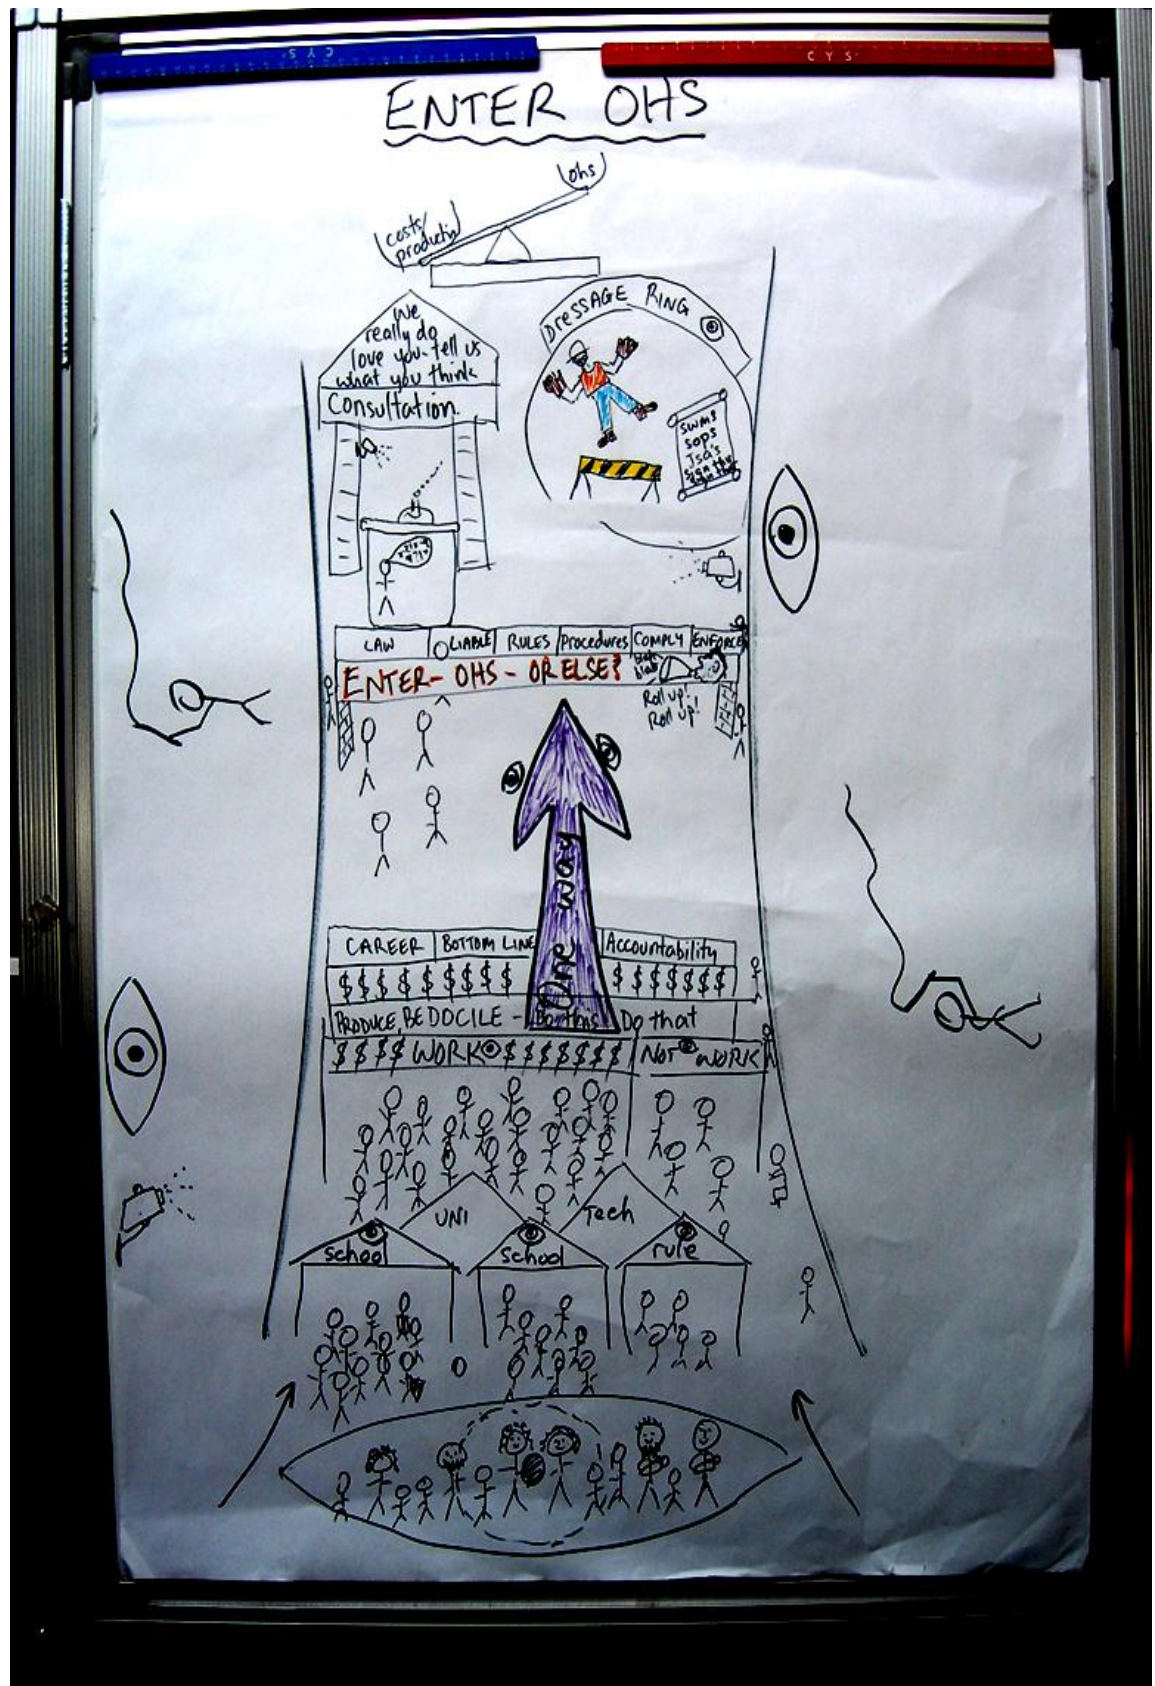 CYS
CYS
ENTER OHS
ohs
costs/
DRESSAGE RING
We
really do
love you-tell us
what you think
Consultation.
SWMS
SOPS
Jsa's
sign this
LAW
LIABLE
RULES
Procedures
COMPLY
ENFORCE
ENTER- OHS - OR ELSE!
Blah
blah
Roll up!
Roll up!
One way
CAREER
BOTTOM LINE
Accountability
$$$$$$$$$ $$$$$$$
PRODUCE, BE DOCILE - Do this Do that
$$$$ WORK $$$$$$$$
NOT WORK
UNI
Tech
School
School
rule